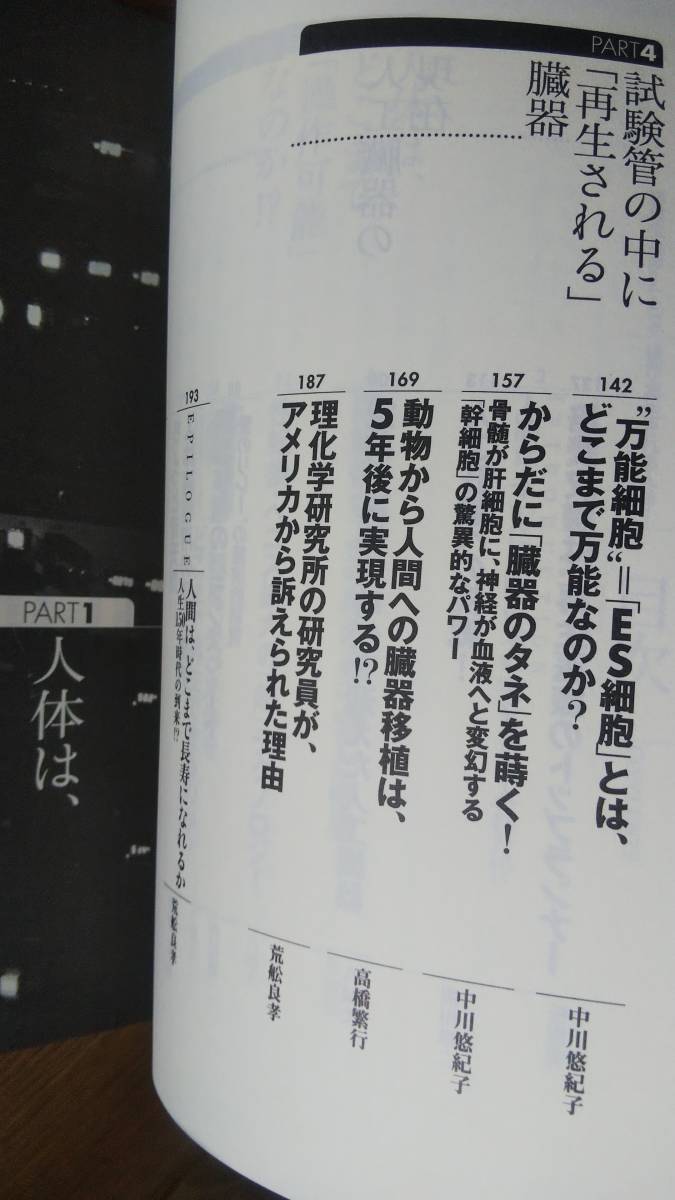 PART4
試験管の中に
「再生される」
臓器
142
"万能細胞"=「ES細胞」とは、
どこまで万能なのか?
中川悠紀子
157
からだに「臓器のタネ」を蒔く!
骨髄が肝細胞に、神経が血液へと変幻する
「幹細胞」の驚異的なパワー
中川悠紀子
169
動物から人間への臓器移植は、
5年後に実現する!?
高橋繁行
187
理化学研究所の研究員が、
アメリカから訴えられた理由
荒舩良孝
193
EPILOGUE
人間は、どこまで長寿になれるか
人生150年時代の到来!?
荒舩良孝
PART1
人体は、